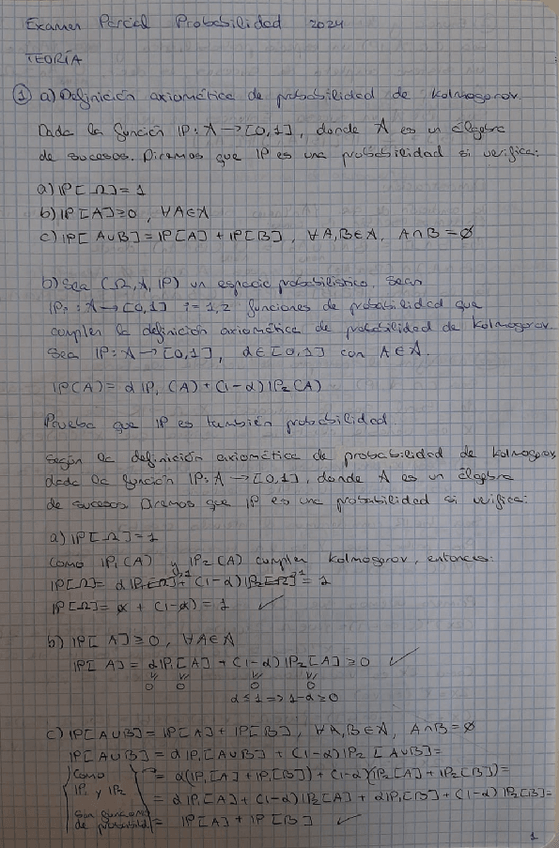 Examen Parcial Probabilidad 2024
TEORÍA
① a) Definición axiomática de probabilidad de Kolmogorov.
Dada la función IP: A → [0,1], donde A es un álgebra
de sucesos. Diremos que IP es una probabilidad si verifica:
a) IP[Ω] = 1
b) IP[A] ≥ 0, ∀A∈A
c) IP[A∪B] = IP[A] + IP[B], ∀A,B∈A, A∩B = ∅
b) Sea (Ω, A, IP) un espacio probabilístico. Sean
IPᵢ: A → [0,1] i = 1,2 funciones de probabilidad que
cumplen la definición axiomática de probabilidad de Kolmogorov.
Sea IP: A → [0,1], α∈[0,1] con A∈A.
IP(A) = α IP₁(A) + (1-α) IP₂(A)
Prueba que IP es también probabilidad
Según la definición axiomática de probabilidad de Kolmogorov
dada la función IP: A → [0,1], donde A es un álgebra
de sucesos Diremos que IP es una probabilidad si verifica:
a) IP[Ω] = 1
Como IP₁(A) y IP₂(A) cumplen Kolmogorov, entonces:
IP[Ω] = α IP₁[Ω]¹ + (1-α) IP₂[Ω]¹ = 1
IP[Ω] = α + (1-α) = 1 ✓
b) IP[A] ≥ 0, ∀A∈A
IP[A] = α IP₁[A] + (1-α) IP₂[A] ≥ 0 ✓
≥0 ≥0 ≥0 ≥0
α ≤ 1 => 1-α ≥ 0
c) IP[A∪B] = IP[A] + IP[B], ∀A,B∈A, A∩B = ∅
IP[A∪B] = α IP₁[A∪B] + (1-α) IP₂[A∪B] =
Como = α(IP₁[A] + IP₁[B]) + (1-α)(IP₂[A] + IP₂[B]) =
IP₁ y IP₂ = α IP₁[A] + (1-α) IP₂[A] + α IP₁[B] + (1-α) IP₂[B] =
son funciones de probabilidad = IP[A] + IP[B] ✓
1